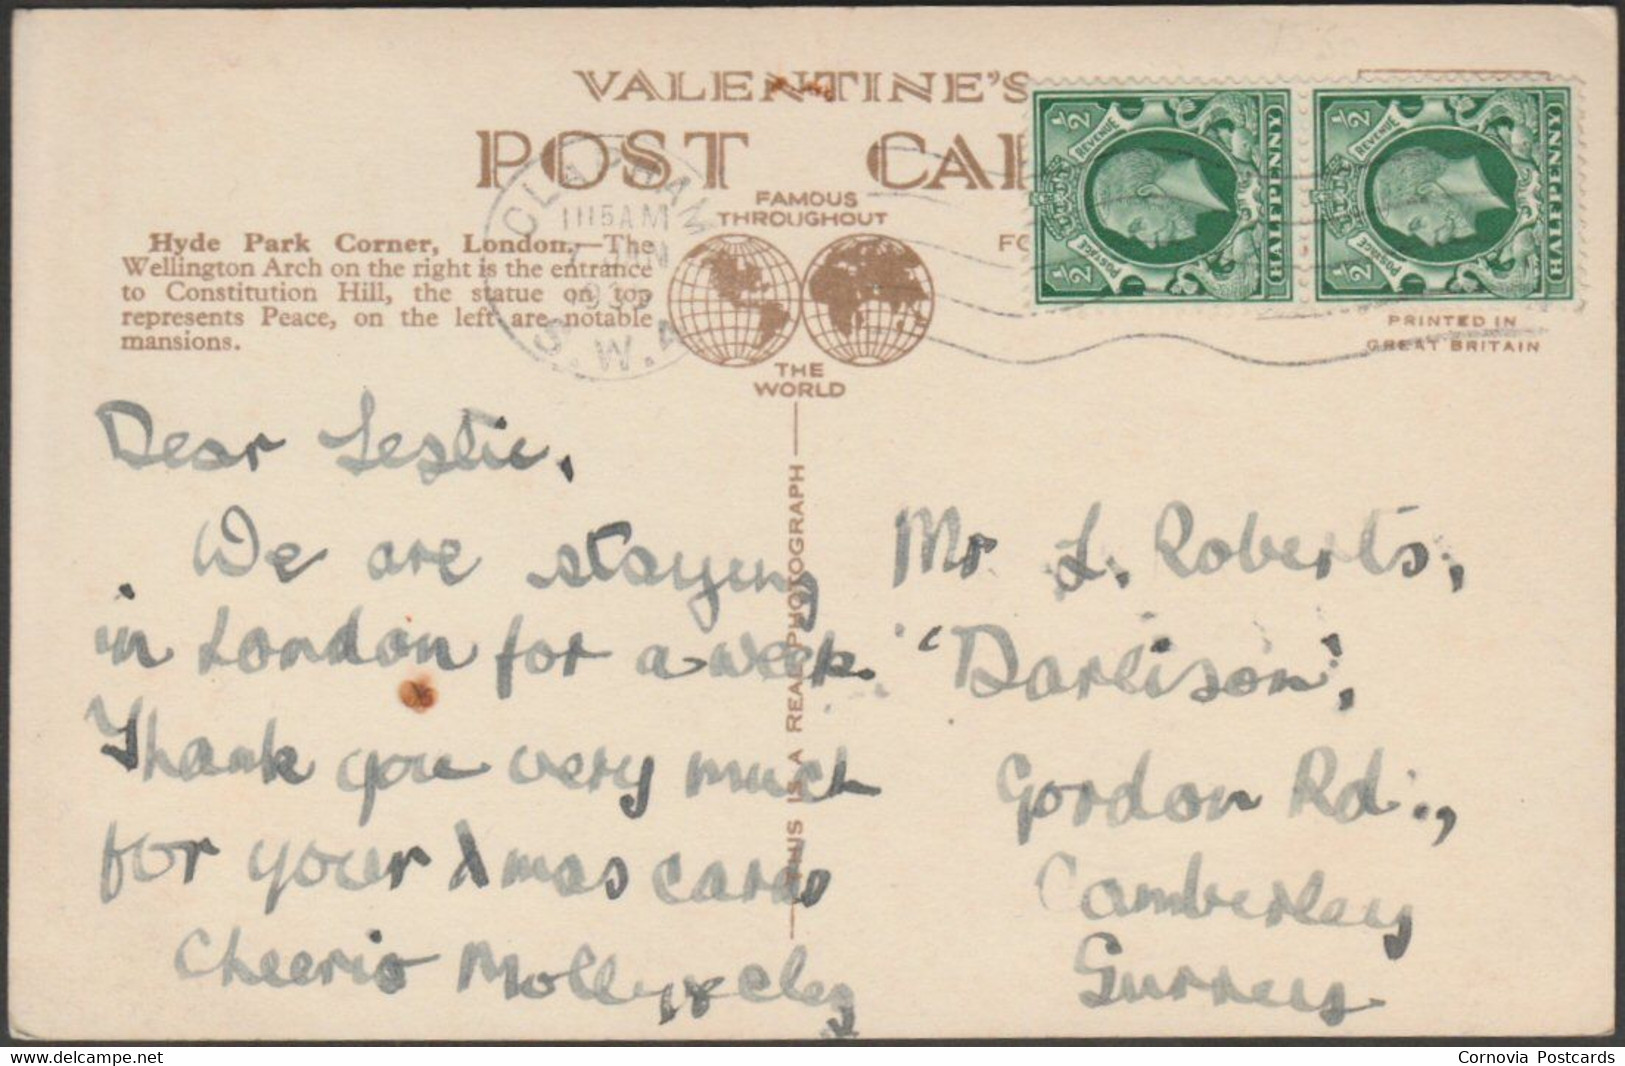 VALENTINE'S
POST CAR
FAMOUS
THROUGHOUT
THE
WORLD
Hyde Park Corner, London.—The
Wellington Arch on the right is the entrance
to Constitution Hill, the statue on top
represents Peace, on the left are notable
mansions.
CLAPHAM
1115AM
JAN
193
S.W.4
FO
HALFPENNY
POSTAGE
REVENUE
1/2
1/2
HALFPENNY
POSTAGE
REVENUE
1/2
1/2
PRINTED IN
GREAT BRITAIN
THIS IS A REAL PHOTOGRAPH
Dear Leslie,
We are staying
in London for a week.
Thank you very much
for your Xmas card
Cheerio Molly &
Mr L. Roberts,
'Darlison',
Gordon Rd.,
Camberley
Surrey
Cornovia Postcards